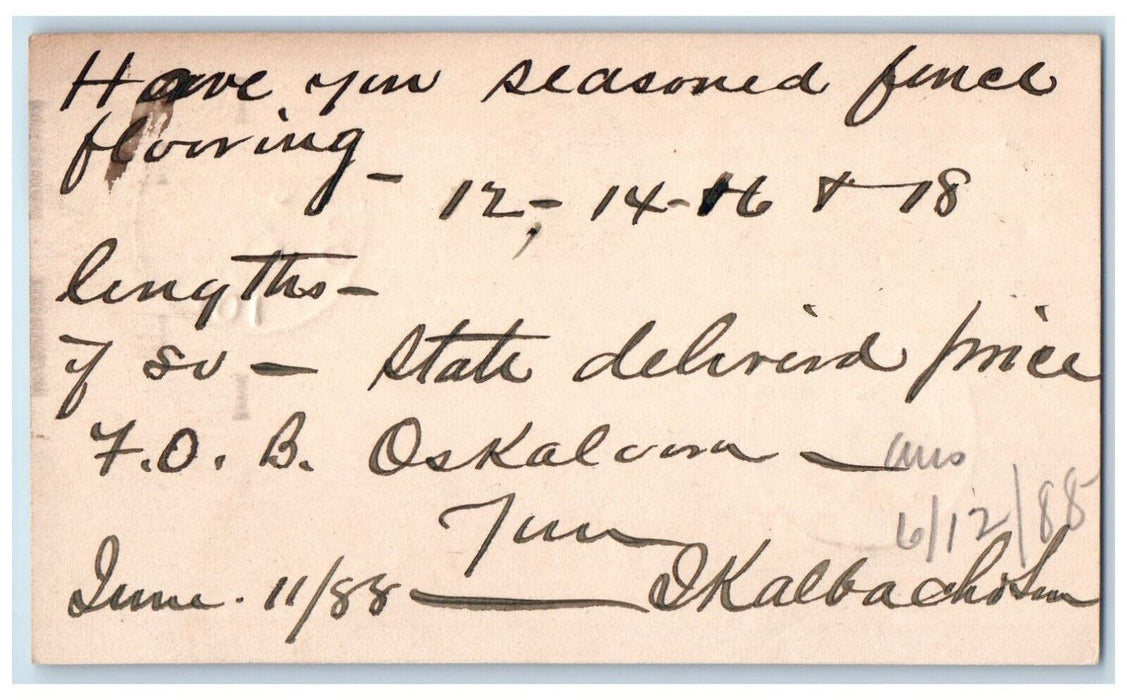 Have you seasoned fence
flooring -
12, - 14 - 16 + 18
lengths -
if so - State deliverd price
F.O.B. Oskaloosa -
ans
6/12/88
Truly
June. 11/88 - I Kalbach & Son